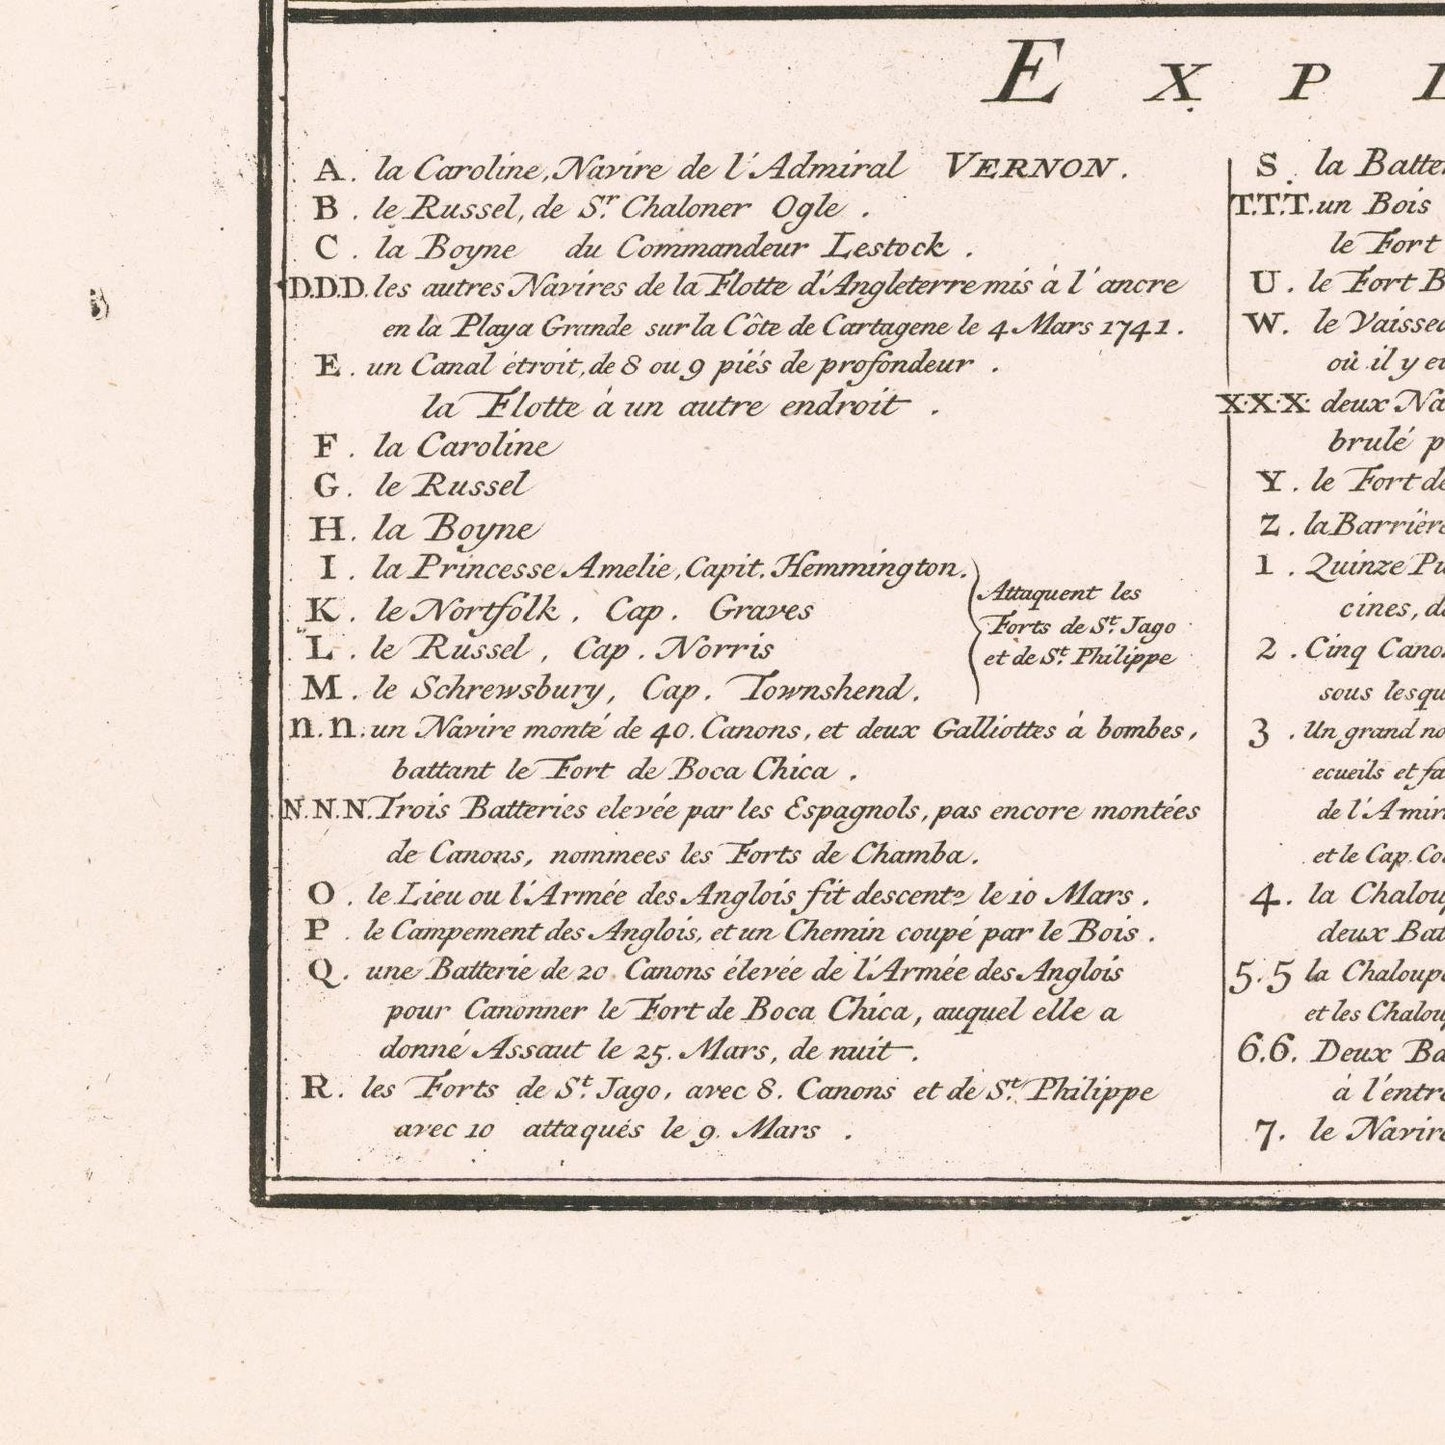 E X P L
A. la Caroline, Navire de l'Admiral VERNON.
B. le Russel, de Sr. Chaloner Ogle.
C. la Boyne du Commandeur Lestock.
D.D.D. les autres Navires de la Flotte d'Angleterre mis à l'ancre
en la Playa Grande sur la Côte de Cartagene le 4 Mars 1741.
E. un Canal étroit, de 8 ou 9 piés de profondeur.
la Flotte à un autre endroit.
F. la Caroline
G. le Russel
H. la Boyne
I. la Princesse Amelie, Capit. Hemmington.
K. le Nortfolk, Cap. Graves
L. le Russel, Cap. Norris
M. le Schrewsbury, Cap. Townshend.
Attaquent les
Forts de St. Jago
et de St. Philippe
n.n. un Navire monté de 40. Canons, et deux Galliottes à bombes,
battant le Fort de Boca Chica.
N.N.N. Trois Batteries elevée par les Espagnols, pas encore montées
de Canons, nommees les Forts de Chamba.
O. le Lieu ou l'Armée des Anglois fit descente le 10 Mars.
P. le Campement des Anglois, et un Chemin coupé par le Bois.
Q. une Batterie de 20 Canons élevée de l'Armée des Anglois
pour Canonner le Fort de Boca Chica, auquel elle a
donné Assaut le 25. Mars, de nuit.
R. les Forts de St. Jago, avec 8. Canons et de St. Philippe
avec 10 attaqués le 9. Mars.
S. la Batte
T.T.T. un Bois
le Fort
U. le Fort B
W. le Vaissea
où il y e
X.X.X. deux Na
brulé p
Y. le Fort de
Z. la Barriére
1. Quinze Pu
cines, d
2. Cinq Cano
sous lesqu
3. Un grand no
ecueils et fa
de l'Amir
et le Cap. Co
4. la Chaloup
deux Bat
5.5 la Chaloupe
et les Chaloup
6.6. Deux Ba
à l'entré
7. le Navire